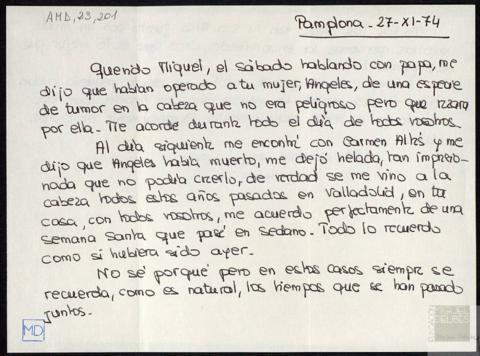 AMD, 23, 201
Pamplona - 27-XI-74
Querido Miguel, el sábado hablando con papa, me
dijo que habían operado a tu mujer, Angeles, de una especie
de tumor en la cabeza que no era peligroso pero que rezara
por ella. Me acorde durante todo el día de todos vosotros.
Al día siguiente me encontré con Carmen Altés y me
dijo que Angeles había muerto, me dejó helada, tan impresio-
nada que no podía creerlo, de verdad se me vino a la
cabeza todos estos años pasados en Valladolid, en tu
casa, con todos vosotros, me acuerdo perfectamente de una
semana santa que pasé en Sedano. Todo lo recuerdo
como si hubiera sido ayer.
No sé porqué pero en estos casos siempre se
recuerda, como es natural, los tiempos que se han pasado
juntos.
MD
DELIBES